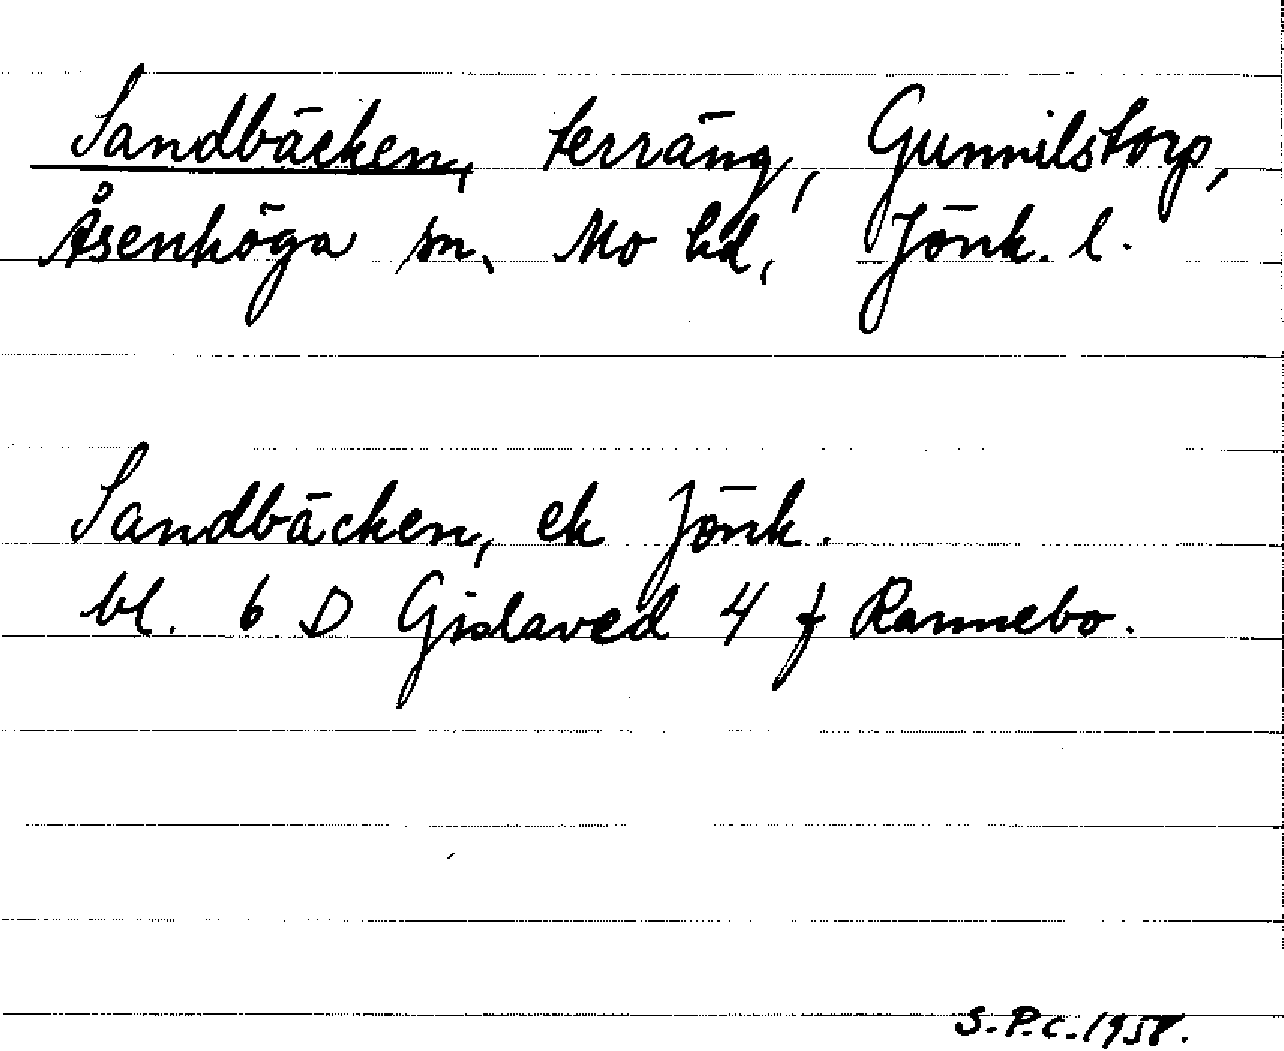 Sandbäcken, terräng, Gunnilstorp,
Åsenhöga sn, Mo hd, Jönk. l.
Sandbäcken, ek Jönk.
bl. 6 D Gislaved 4 f Rannebo.
S.P.C. 1958.